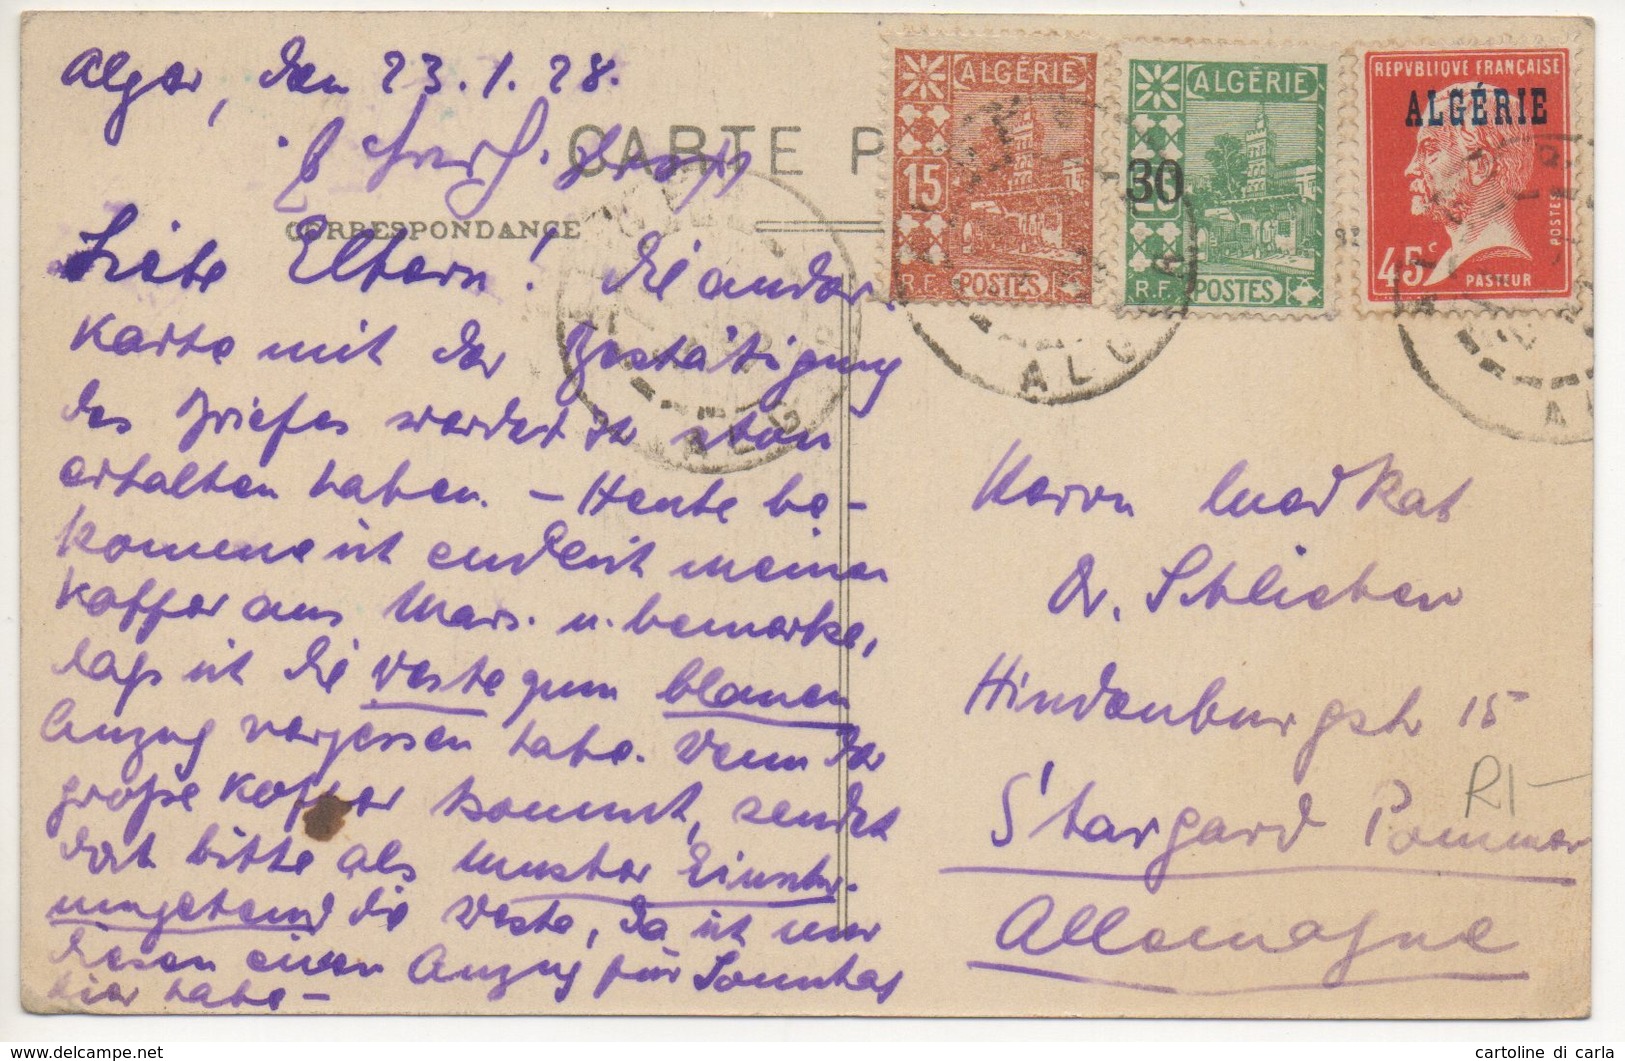 Alger, den 23.1.28.
CARTE P
CORRESPONDANCE
Liebe Eltern! Die andere
Karte mit der Bestätigung
des Briefes werdet Ihr schon
erhalten haben. – Heute be-
komme ich endlich meinen
Koffer aus Mars. u. bemerke,
daß ich die Weste zum blauen
Anzug vergessen habe. Wenn der
große Koffer kommt, sendet
doch bitte als Muster Einschr.
umgehend die Weste, da ich nur
diesen einen Anzug für Sonntag
hier habe –
ALGÉRIE
15
R.F. POSTES
ALGÉRIE
30
R.F. POSTES
REPVBLIQVE FRANÇAISE
ALGÉRIE
POSTES
45c
PASTEUR
ALG
ALG
Herrn Med Rat
Dr. Schlieben
Hindenburgstr 15
Stargard Pommer
Allemagne
R1–
www.delcampe.net
cartoline di carla